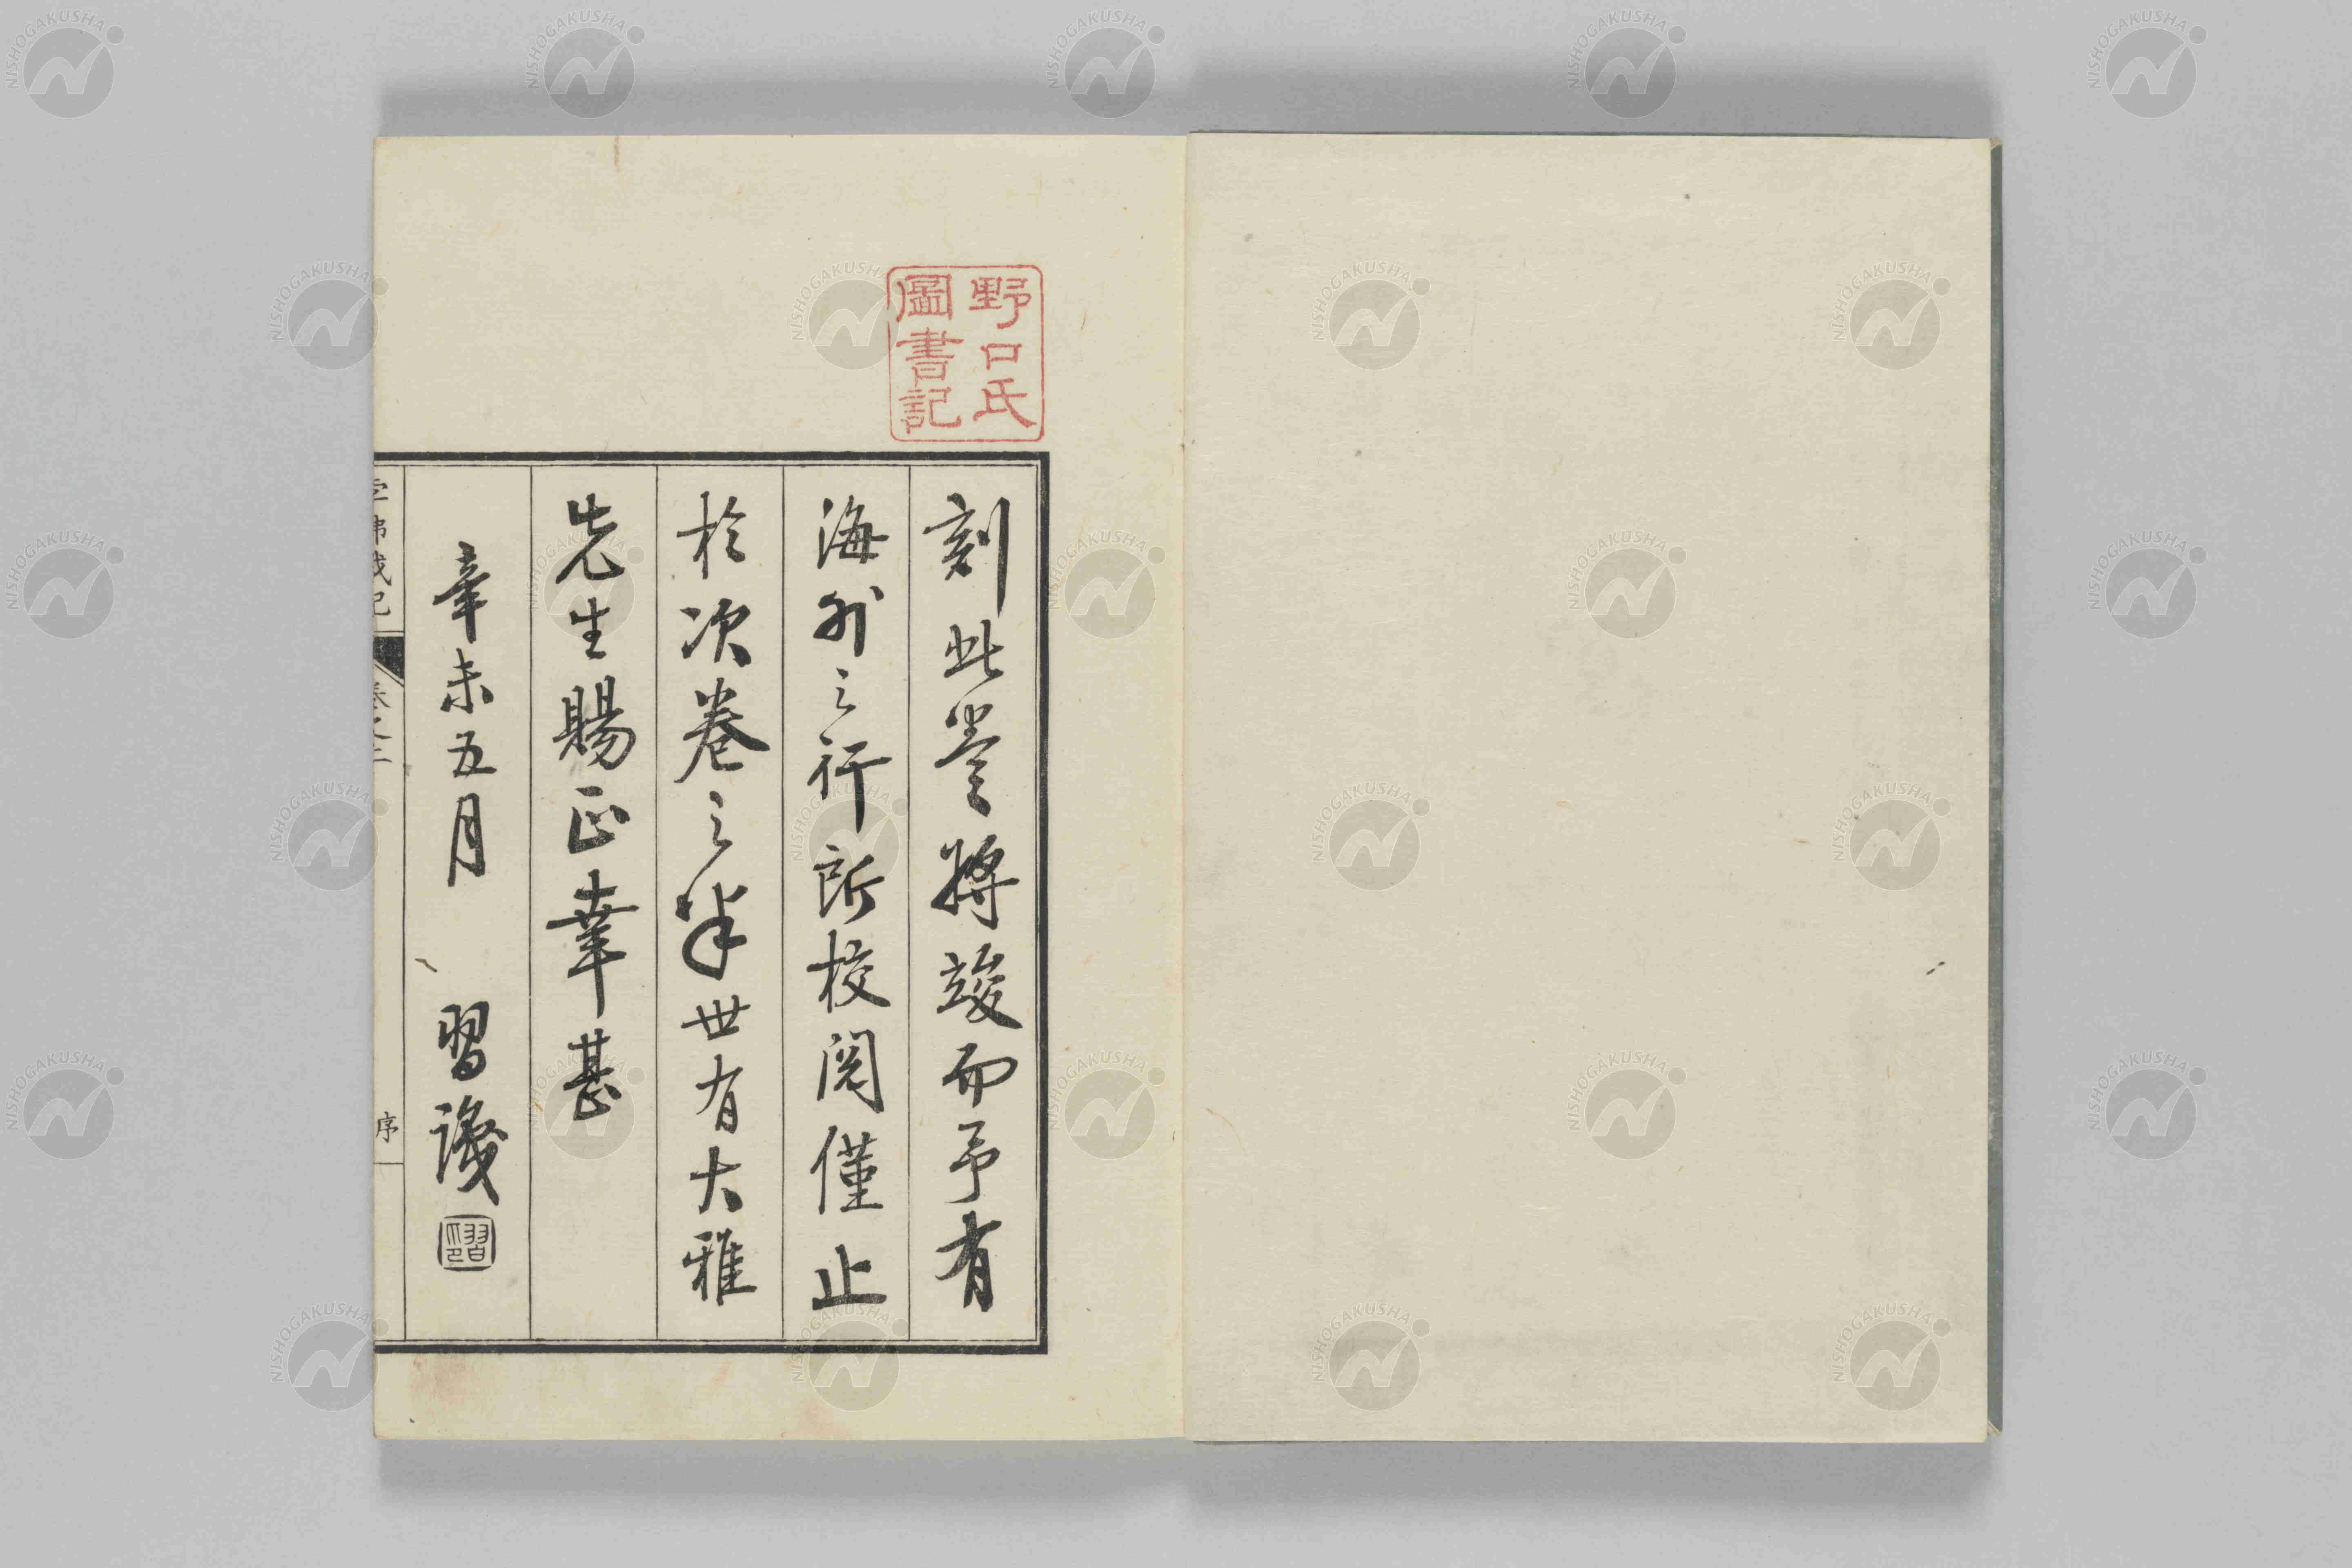 野口氏
圖書記
刻此卷將竣而予有
海外之行所校閱僅止
於次卷之半世有大雅
先生賜正幸甚
辛未五月 習
序
NISHOGAKUSHA